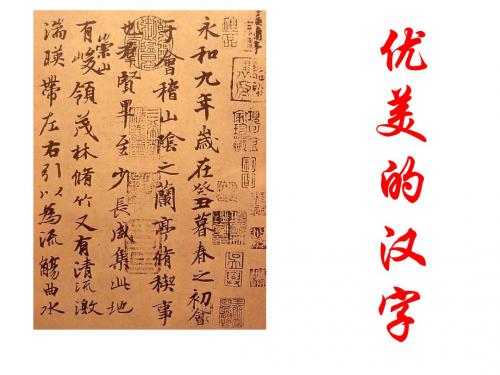 优美的汉字
永和九年歲在癸丑暮春之初會
于會稽山陰之蘭亭脩稧事
也羣賢畢至少長咸集此地
有崇山峻領茂林脩竹又有清流激
湍暎帶左右引以為流觴曲水